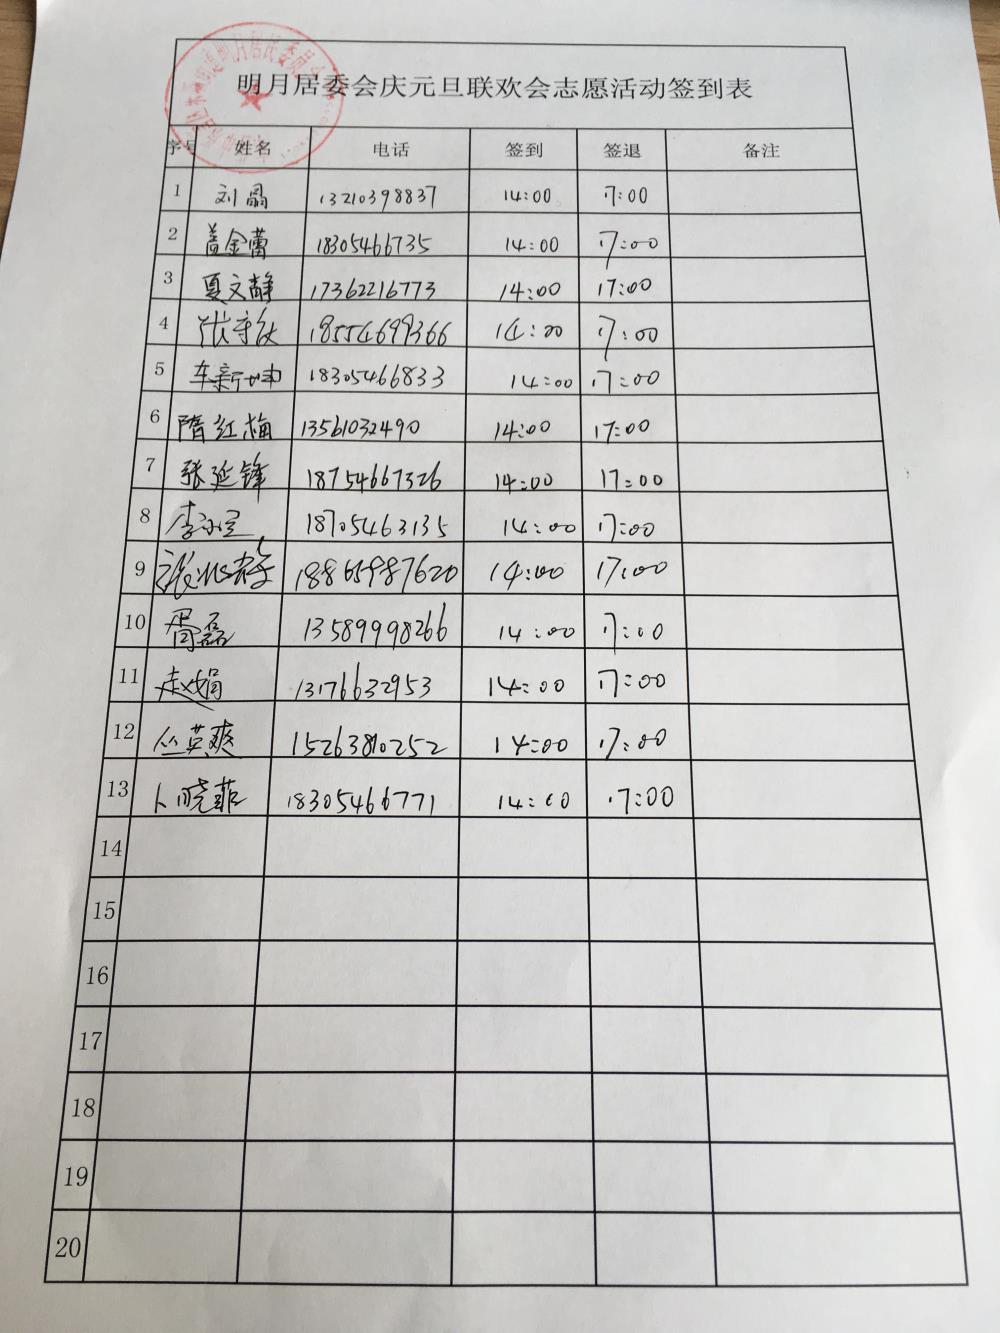 明月居委会庆元旦联欢会志愿活动签到表
序号 姓名 电话 签到 签退 备注
1 刘晶 13210398837 14:00 17:00
2 盖金蕾 18305466735 14:00 17:00
3 夏文静 17362216773 14:00 17:00
4 18554699366 14:00 17:00
5 车新坤 18305466833 14:00 17:00
6 隋红梅 13561032490 14:00 17:00
7 张延锋 18754667326 14:00 17:00
8 18705463135 14:00 17:00
9 18865987620 14:00 17:00
10 胥磊 13589998266 14:00 17:00
11 赵娟 13176632953 14:00 17:00
12 丛英爽 15263810252 14:00 17:00
13 卜晓菲 18305466771 14:00 17:00
14
15
16
17
18
19
20